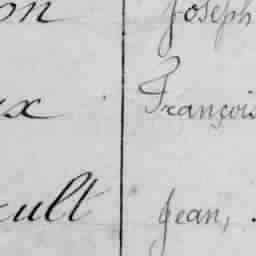 on Joseph
ux François
cult Jean,